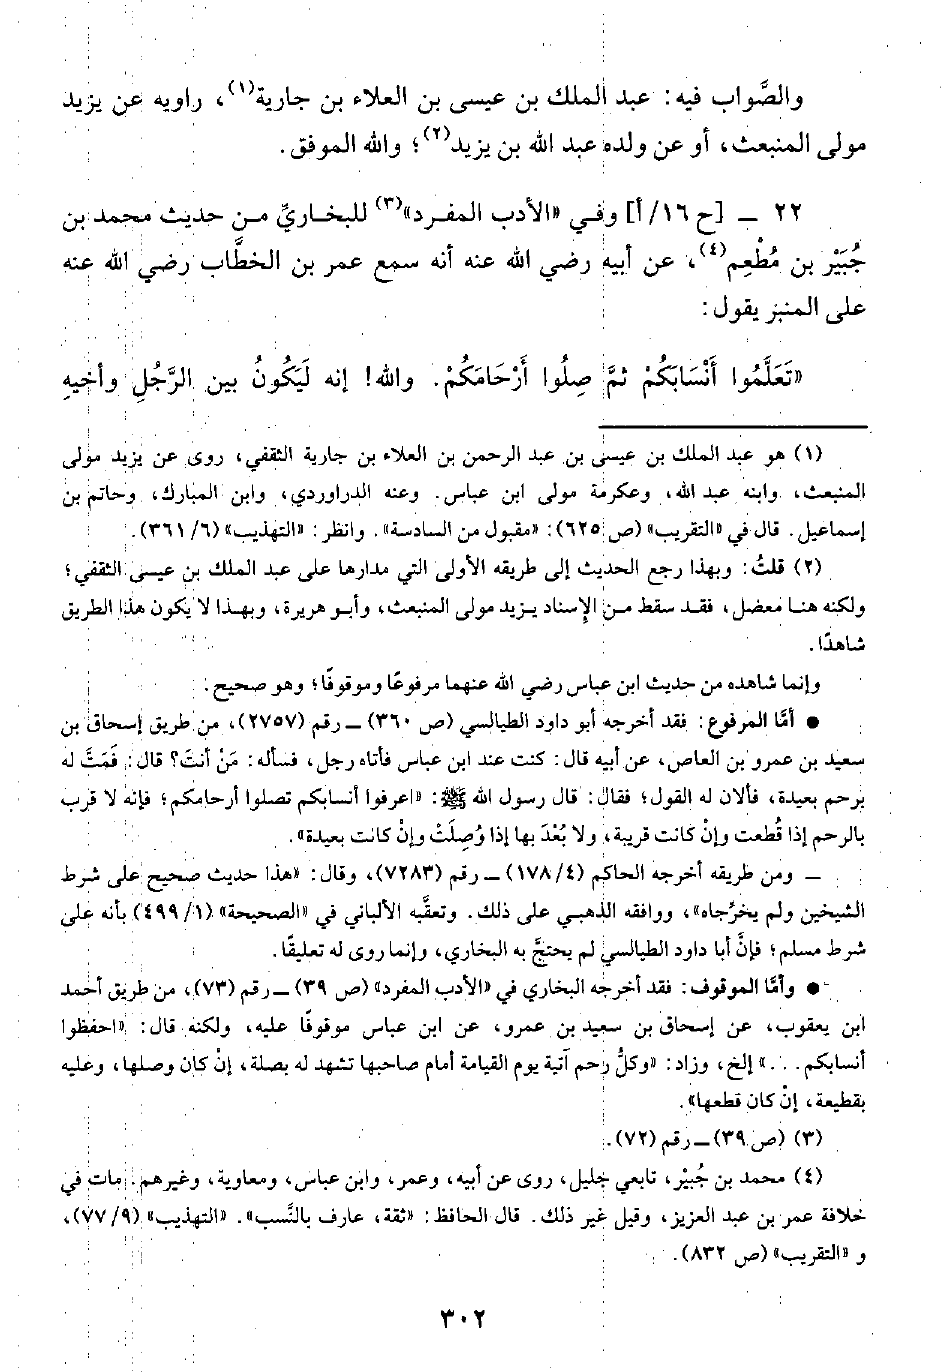 والصَّواب فيه: عبد الملك بن عيسى بن العلاء بن جارية(١)، راويه عن يزيد
مولى المنبعث، أو عن ولده عبد الله بن يزيد(٢)؛ والله الموفق.
٢٢ ــ [ح ١٦/أ] وفي «الأدب المفرد»(٣) للبخاريِّ من حديث محمد بن
جُبَيْر بن مُطْعِم(٤)، عن أبيه رضي الله عنه أنه سمع عمر بن الخطَّاب رضي الله عنه
على المنبر يقول:
«تَعَلَّمُوا أَنْسَابَكُمْ ثمَّ صِلُوا أَرْحَامَكُمْ. والله! إنه لَيَكُونُ بين الرَّجُلِ وأخيهِ
(١) هو عبد الملك بن عيسى بن عبد الرحمن بن العلاء بن جارية الثقفي، روى عن يزيد مولى
المنبعث، وابنه عبد الله، وعكرمة مولى ابن عباس. وعنه الدراوردي، وابن المبارك، وحاتم بن
إسماعيل. قال في «التقريب» (ص ٦٢٥): «مقبول من السادسة». وانظر: «التهذيب» (٦/ ٣٦١).
(٢) قلتُ: وبهذا رجع الحديث إلى طريقه الأولى التي مدارها على عبد الملك بن عيسى الثقفي؛
ولكنه هنا معضل، فقد سقط من الإسناد يزيد مولى المنبعث، وأبو هريرة، وبهذا لا يكون هذا الطريق
شاهدًا.
وإنما شاهده من حديث ابن عباس رضي الله عنهما مرفوعًا وموقوفًا؛ وهو صحيح.
● أمَّا المرفوع: فقد أخرجه أبو داود الطيالسي (ص ٣٦٠) ــ رقم (٢٧٥٧)، من طريق إسحاق بن
سعيد بن عمرو بن العاص، عن أبيه قال: كنت عند ابن عباس فأتاه رجل، فسأله: مَنْ أنتَ؟ قال: فَمَتَّ له
برحم بعيدة، فألان له القول؛ فقال: قال رسول الله ﷺ: «اعرفوا أنسابكم تصلوا أرحامكم؛ فإنه لا قرب
بالرحم إذا قُطعت وإنْ كانت قريبة، ولا بُعْدَ بها إذا وُصِلَتْ وإنْ كانت بعيدة».
ــ ومن طريقه أخرجه الحاكم (٤/ ١٧٨) ــ رقم (٧٢٨٣)، وقال: «هذا حديث صحيح على شرط
الشيخين ولم يخرِّجاه»، ووافقه الذهبي على ذلك. وتعقَّبه الألباني في «الصحيحة» (١/ ٤٩٩) بأنه على
شرط مسلم؛ فإنَّ أبا داود الطيالسي لم يحتجَّ به البخاري، وإنما روى له تعليقًا.
● وأمَّا الموقوف: فقد أخرجه البخاري في «الأدب المفرد» (ص ٣٩) ــ رقم (٧٣)، من طريق أحمد
ابن يعقوب، عن إسحاق بن سعيد بن عمرو، عن ابن عباس موقوفًا عليه، ولكنه قال: «احفظوا
أنسابكم . . .» إلخ، وزاد: «وكلُّ رحم آتية يوم القيامة أمام صاحبها تشهد له بصلة، إنْ كان وصلها، وعليه
بقطيعة، إنْ كان قطعها».
(٣) (ص ٣٩) ــ رقم (٧٢).
(٤) محمد بن جُبيْر، تابعي جليل، روى عن أبيه، وعمر، وابن عباس، ومعاوية، وغيرهم. مات في
خلافة عمر بن عبد العزيز، وقيل غير ذلك. قال الحافظ: «ثقة، عارف بالنَّسب». «التهذيب» (٩/ ٧٧)،
و «التقريب» (ص ٨٣٢).
٣٠٢